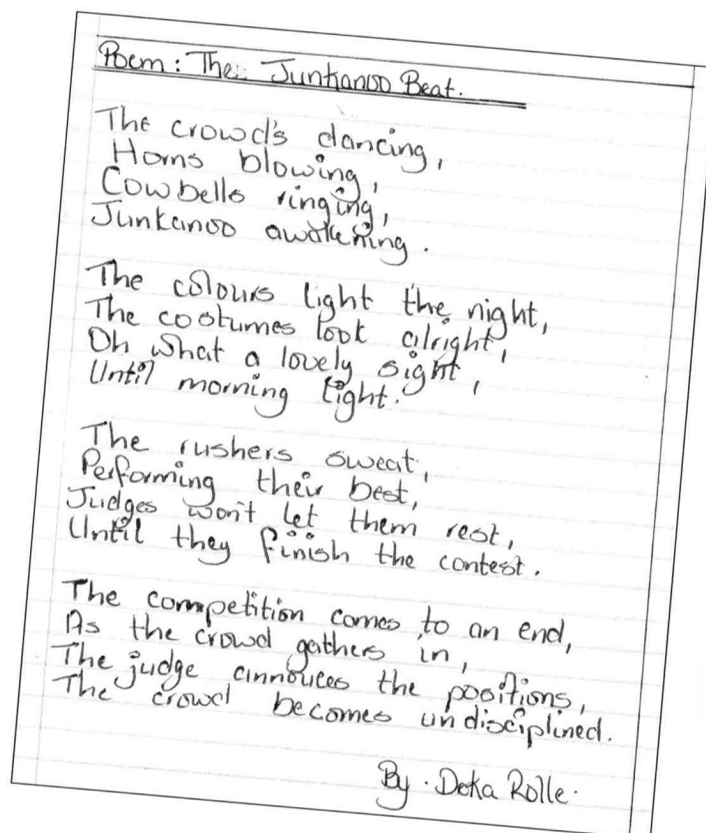 Poem: The Junkanoo Beat.
The crowd's dancing,
Horns blowing,
Cowbells ringing,
Junkanoo awakening.
The colours light the night,
The costumes look alright,
Oh what a lovely sight,
Until morning light.
The rushers sweat,
Performing their best,
Judges won't let them rest,
Until they finish the contest.
The competition comes to an end,
As the crowd gathers in,
The judge annouces the positions,
The crowd becomes undisciplined.
By. Deka Rolle.